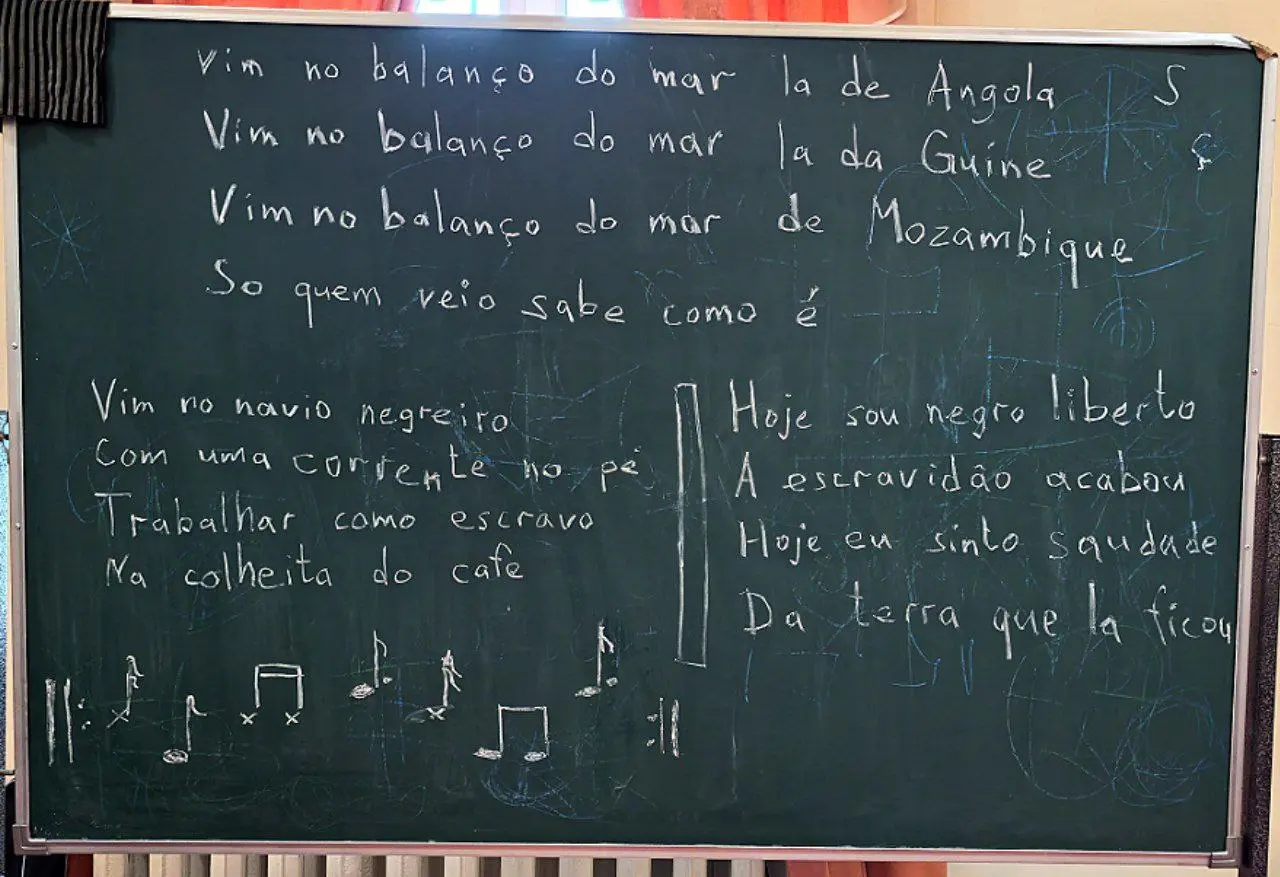 Vim no balanço do mar la de Angola S
Vim no balanço do mar la da Guine ç
Vim no balanço do mar de Mozambique
So quem veio sabe como é
Vim no navio negreiro
Com uma corrente no pé
Trabalhar como escravo
Na colheita do cafe
Hoje sou negro liberto
A escravidão acabou
Hoje eu sinto saudade
Da terra que la ficou